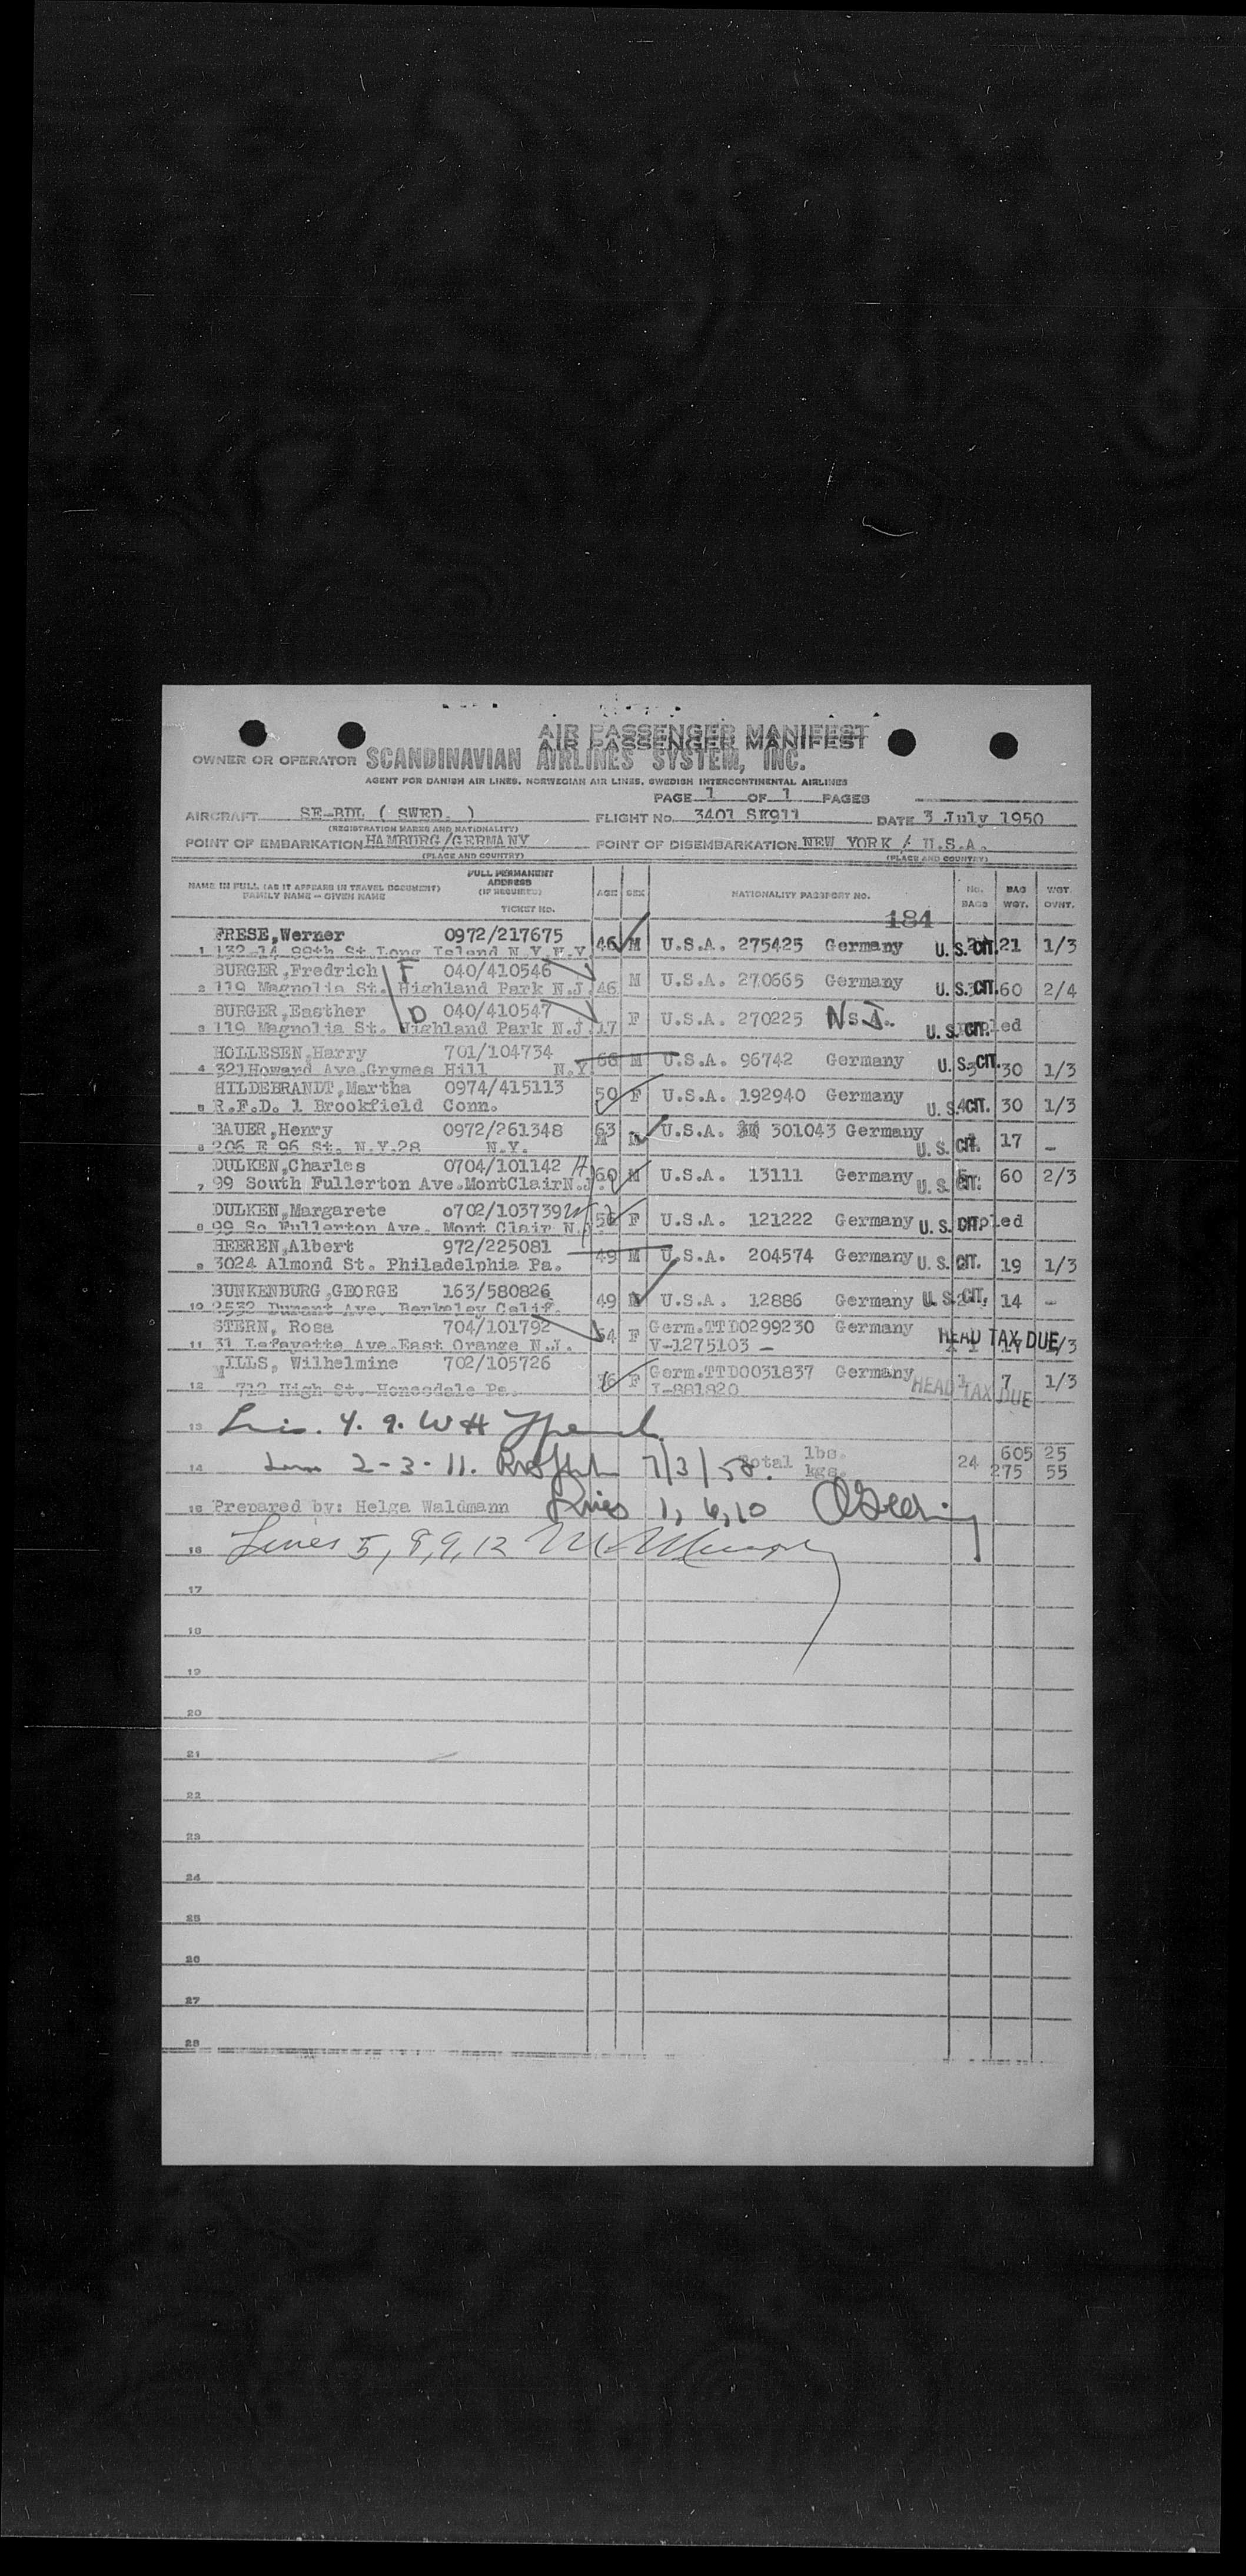 AIR PASSENGER MANIFEST
AIR PASSENGER MANIFEST
OWNER OR OPERATOR SCANDINAVIAN AIRLINES SYSTEM, INC.
AGENT FOR DANISH AIR LINES, NORWEGIAN AIR LINES, SWEDISH INTERCONTINENTAL AIRLINES
PAGE 1 OF 1 PAGES
AIRCRAFT SE-BDL ( SWED. ) FLIGHT No. 3401 SK911 DATE 3 July 1950
(REGISTRATION MARKS AND NATIONALITY)
POINT OF EMBARKATION HAMBURG/GERMANY POINT OF DISEMBARKATION NEW YORK / U.S.A.
(PLACE AND COUNTRY) (PLACE AND COUNTRY)
NAME IN FULL (AS IT APPEARS IN TRAVEL DOCUMENT) FAMILY NAME — GIVEN NAME FULL PERMANENT ADDRESS (IF REQUIRED) TICKET No. AGE SEX NATIONALITY PASSPORT NO. No. BAGS BAG WGT. WGT. OVHT.
184
FRESE,Werner 0972/217675 46 M U.S.A. 275425 Germany U.S.CIT. 21 1/3
1 132-14 98th St.Long Island N.Y.N.Y.
BURGER,Fredrich F 040/410546 M U.S.A. 270665 Germany U.S.CIT. 60 2/4
2 119 Magnolia St. Highland Park N.J. 46
BURGER,Easther D 040/410547 F U.S.A. 270225 U.S.CIT.
3 119 Magnolia St. Highland Park N.J. 17
HOLLESEN,Harry 701/104734 66 M U.S.A. 96742 Germany U.S.CIT. 30 1/3
4 321Howard Ave.Grymes Hill N.Y.
HILDEBRANDT,Martha 0974/415113 50 F U.S.A. 192940 Germany U.S.CIT. 30 1/3
5 R.F.D. 1 Brookfield Conn.
BAUER,Henry 0972/261348 63 M U.S.A. 301043 Germany U.S.CIT. 17 -
6 206 E 96 St. N.Y.28 N.Y.
DULKEN,Charles 0704/101142 H 60 M U.S.A. 13111 Germany U.S.CIT. 60 2/3
7 99 South Fullerton Ave.MontClairN.J.
DULKEN,Margarete 0702/103739 W 56 F U.S.A. 121222 Germany U.S.CIT.
8 99 So Fullerton Ave. Mont Clair N.J.
HEEREN,Albert 972/225081 49 M U.S.A. 204574 Germany U.S.CIT. 19 1/3
9 3024 Almond St. Philadelphia Pa.
BUNKENBURG,GEORGE 163/580826 49 M U.S.A. 12886 Germany U.S.CIT. 14 -
10 2532 Durant Ave. Berkeley Calif.
STERN, Rosa 704/101792 54 F Germ.TTD0299230 Germany HEAD TAX DUE
11 31 Lafayette Ave.East Orange N.J. V-1275103 -
MILLS, Wilhelmine 702/105726 F Germ.TTD0031837 Germany 1 7 1/3
12 712 High St. Honesdale Pa. I-881820 HEAD TAX DUE
13
14 2-3-11. 7/3/50. Total lbs. kgs. 24 605 275 25 55
15 Prepared by: Helga Waldmann Lines 1, 6, 10
16 Lines 5, 8, 9, 12
17
18
19
20
21
22
23
24
25
26
27
28